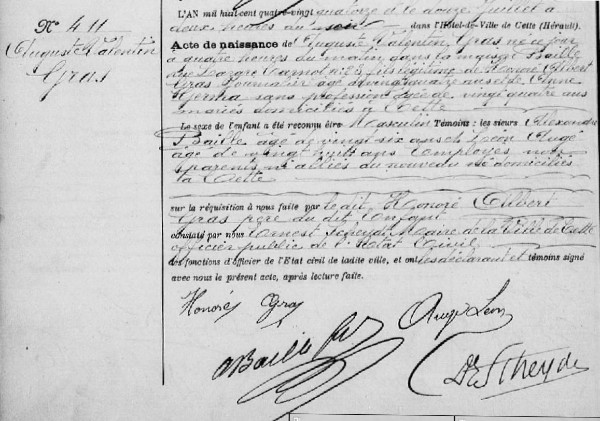 N° 411
Auguste Valentin
Gras
L'AN mil huit cent quatre-vingt quatorze et le douze Juillet à
deux heures du soir dans l'Hôtel-de-Ville de Cette (Hérault).
Acte de naissance de Auguste Valentin Gras né ce jour
à quatre heures du matin dans la maison Baille
rue Lazare Carnot N° fils légitime de Honoré Alibert
Gras Journalier âgé de vingt ans et de Anne
sans profession âgée de vingt quatre ans
mariés domiciliés à Cette
Le sexe de l'enfant a été reconnu être Masculin Témoins : les sieurs Alexandre
Baille âgé de vingt six ans et Léon Augé
âgé de vingt huit ans Employés non
parents ni alliés du nouveau né domiciliés
à Cette
sur la réquisition à nous faite par le dit Honoré Alibert
Gras père du dit Enfant
constaté par nous Ernest Maire de la Ville de Cette
officier public de l'Etat Civil
des fonctions d'officier de l'Etat civil de ladite ville, et ont les déclarant et témoins signé
avec nous le présent acte, après lecture faite.
Honoré Gras
ABaille Augé Léon
Scheydt